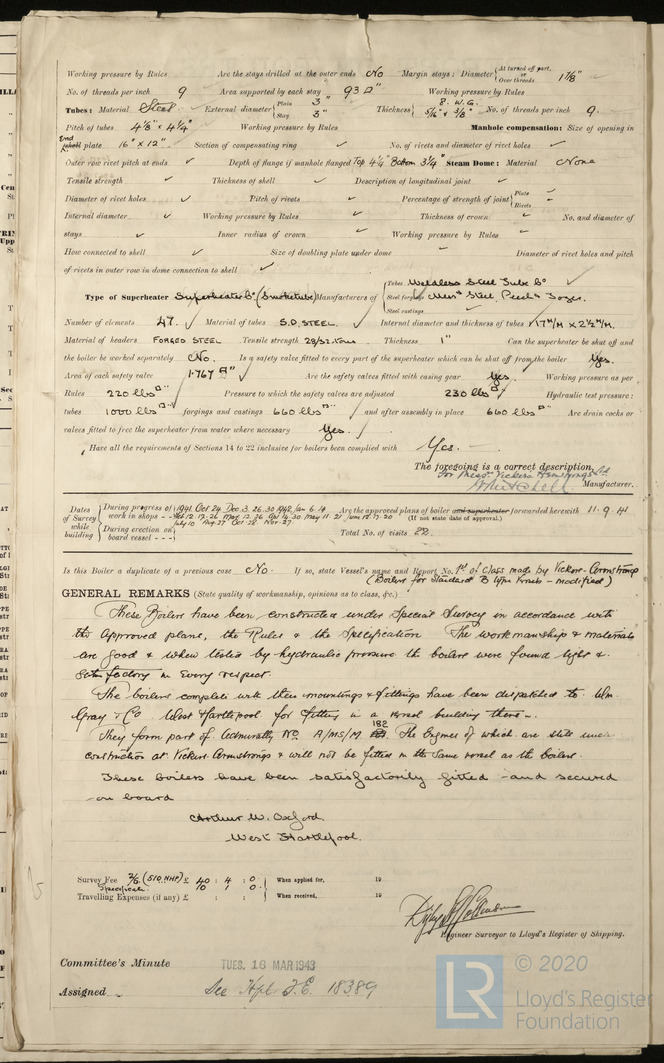 Working pressure by Rules Are the stays drilled at the outer ends No Margin stays: Diameter { At turned off part, or Over threads 1⅞"
No. of threads per inch 9 Area supported by each stay 93 □" Working pressure by Rules
Tubes: Material Steel External diameter { Plain 3" Stay 3" Thickness { 8 W.G. 5/16" & 3/8" No. of threads per inch 9.
Pitch of tubes 4⅛" x 4¼" Working pressure by Rules Manhole compensation: Size of opening in
End shell plate 16" x 12" Section of compensating ring ✓ No. of rivets and diameter of rivet holes ✓
Outer row rivet pitch at ends ✓ Depth of flange if manhole flanged Top 4¼" Bottom 3¼" Steam Dome: Material None
Tensile strength ✓ Thickness of shell ✓ Description of longitudinal joint ✓
Diameter of rivet holes ✓ Pitch of rivets ✓ Percentage of strength of joint { Plate Rivets
Internal diameter ✓ Working pressure by Rules ✓ Thickness of crown ✓ No. and diameter of
stays ✓ Inner radius of crown ✓ Working pressure by Rules ✓
How connected to shell ✓ Size of doubling plate under dome ✓ Diameter of rivet holes and pitch
of rivets in outer row in dome connection to shell ✓
Type of Superheater Superheater Co (Smoketube) Manufacturers of { Tubes Weldless Steel Tube Co
Steel forgings Steel, Peech & Tozer.
Steel castings
Number of elements 47. Material of tubes S.D. STEEL. Internal diameter and thickness of tubes 17 M/M x 2½ M/M.
Material of headers FORGED STEEL Tensile strength 28/32 tons Thickness 1" Can the superheater be shut off and
the boiler be worked separately No. Is a safety valve fitted to every part of the superheater which can be shut off from the boiler Yes.
Area of each safety valve 1.767 □" Are the safety valves fitted with easing gear Yes. Working pressure as per
Rules 220 lbs □" Pressure to which the safety valves are adjusted 230 lbs □" Hydraulic test pressure:
tubes 1000 lbs □" forgings and castings 660 lbs □" and after assembly in place 660 lbs □" Are drain cocks or
valves fitted to free the superheater from water where necessary Yes.
Have all the requirements of Sections 14 to 22 inclusive for boilers been complied with Yes.
The foregoing is a correct description,
For Messrs Vickers Armstrongs Ltd
Manufacturer.
Dates of Survey while building { During progress of work in shops - - 1941. Oct 24 Dec 3. 26. 30 1942 Jan 6. 14
During erection on board vessel - - - July 10 Aug 27 Oct 28 Nov 27
Are the approved plans of boiler and superheater forwarded herewith 11.9.41
(If not state date of approval.)
Total No. of visits 22
Is this Boiler a duplicate of a previous case No. If so, state Vessel's name and Report No. 1st of Class made by Vickers-Armstrong
(Boilers for Standard B type Vessels - modified)
GENERAL REMARKS (State quality of workmanship, opinions as to class, &c.)
These Boilers have been constructed under Special Survey in accordance with
the Approved plans, the Rules & the Specification The workmanship & materials
are good & when tested by hydraulic pressure the boilers were found tight &
satisfactory in every respect.
The boilers complete with their mountings & fittings have been dispatched to Wm.
Gray & Co West Hartlepool for fitting in a vessel building there.
They form part of Admiralty No. A/MS/M 182 The Engines of which are still under
construction at Vickers-Armstrongs & will not be fitted in the same vessel as the boilers.
These boilers have been satisfactorily fitted and secured
on board
Arthur W. Oxford.
West Hartlepool.
Survey Fee (510 NHP) £ 40 : 4 : 0 When applied for, 19
Specification 10 1 0
Travelling Expenses (if any) £ : : When received, 19
Engineer Surveyor to Lloyd's Register of Shipping.
Committee's Minute TUES. 16 MAR 1943
Assigned See Hpl. F.E. 18389
LR © 2020
Lloyd's Register
Foundation